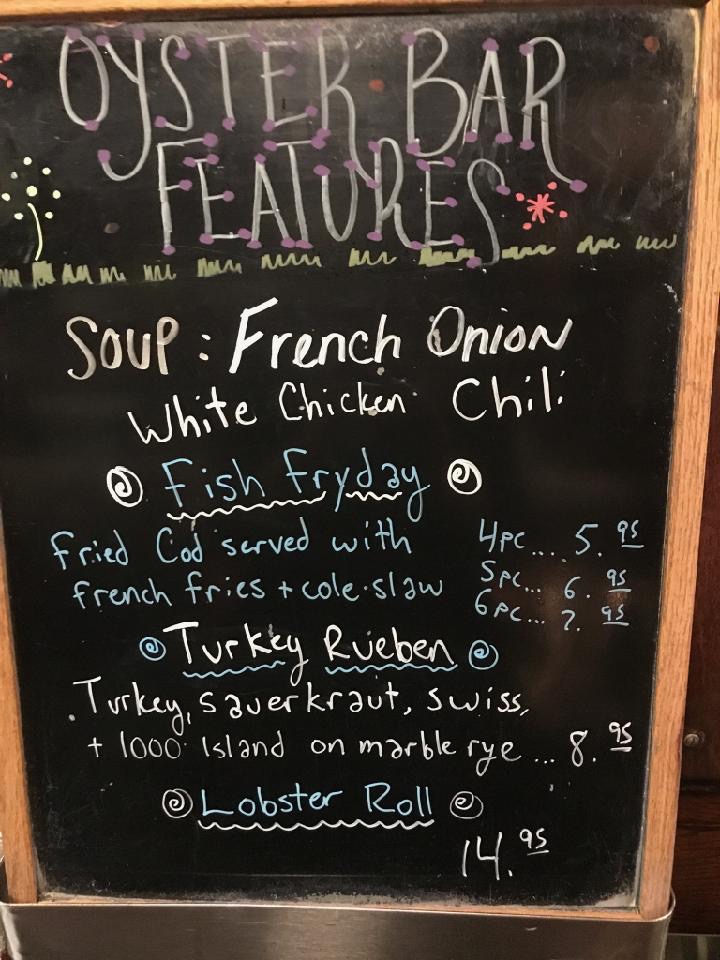 OYSTER BAR
FEATURES
SOUP: French Onion
White Chicken Chili
Fish Fryday
Fried Cod served with 4pc.... 5.95
french fries + cole-slaw 5pc... 6.95
6pc... 7.95
Turkey Rueben
Turkey, sauerkraut, swiss,
+ 1000 Island on marble rye ... 8.95
Lobster Roll
14.95